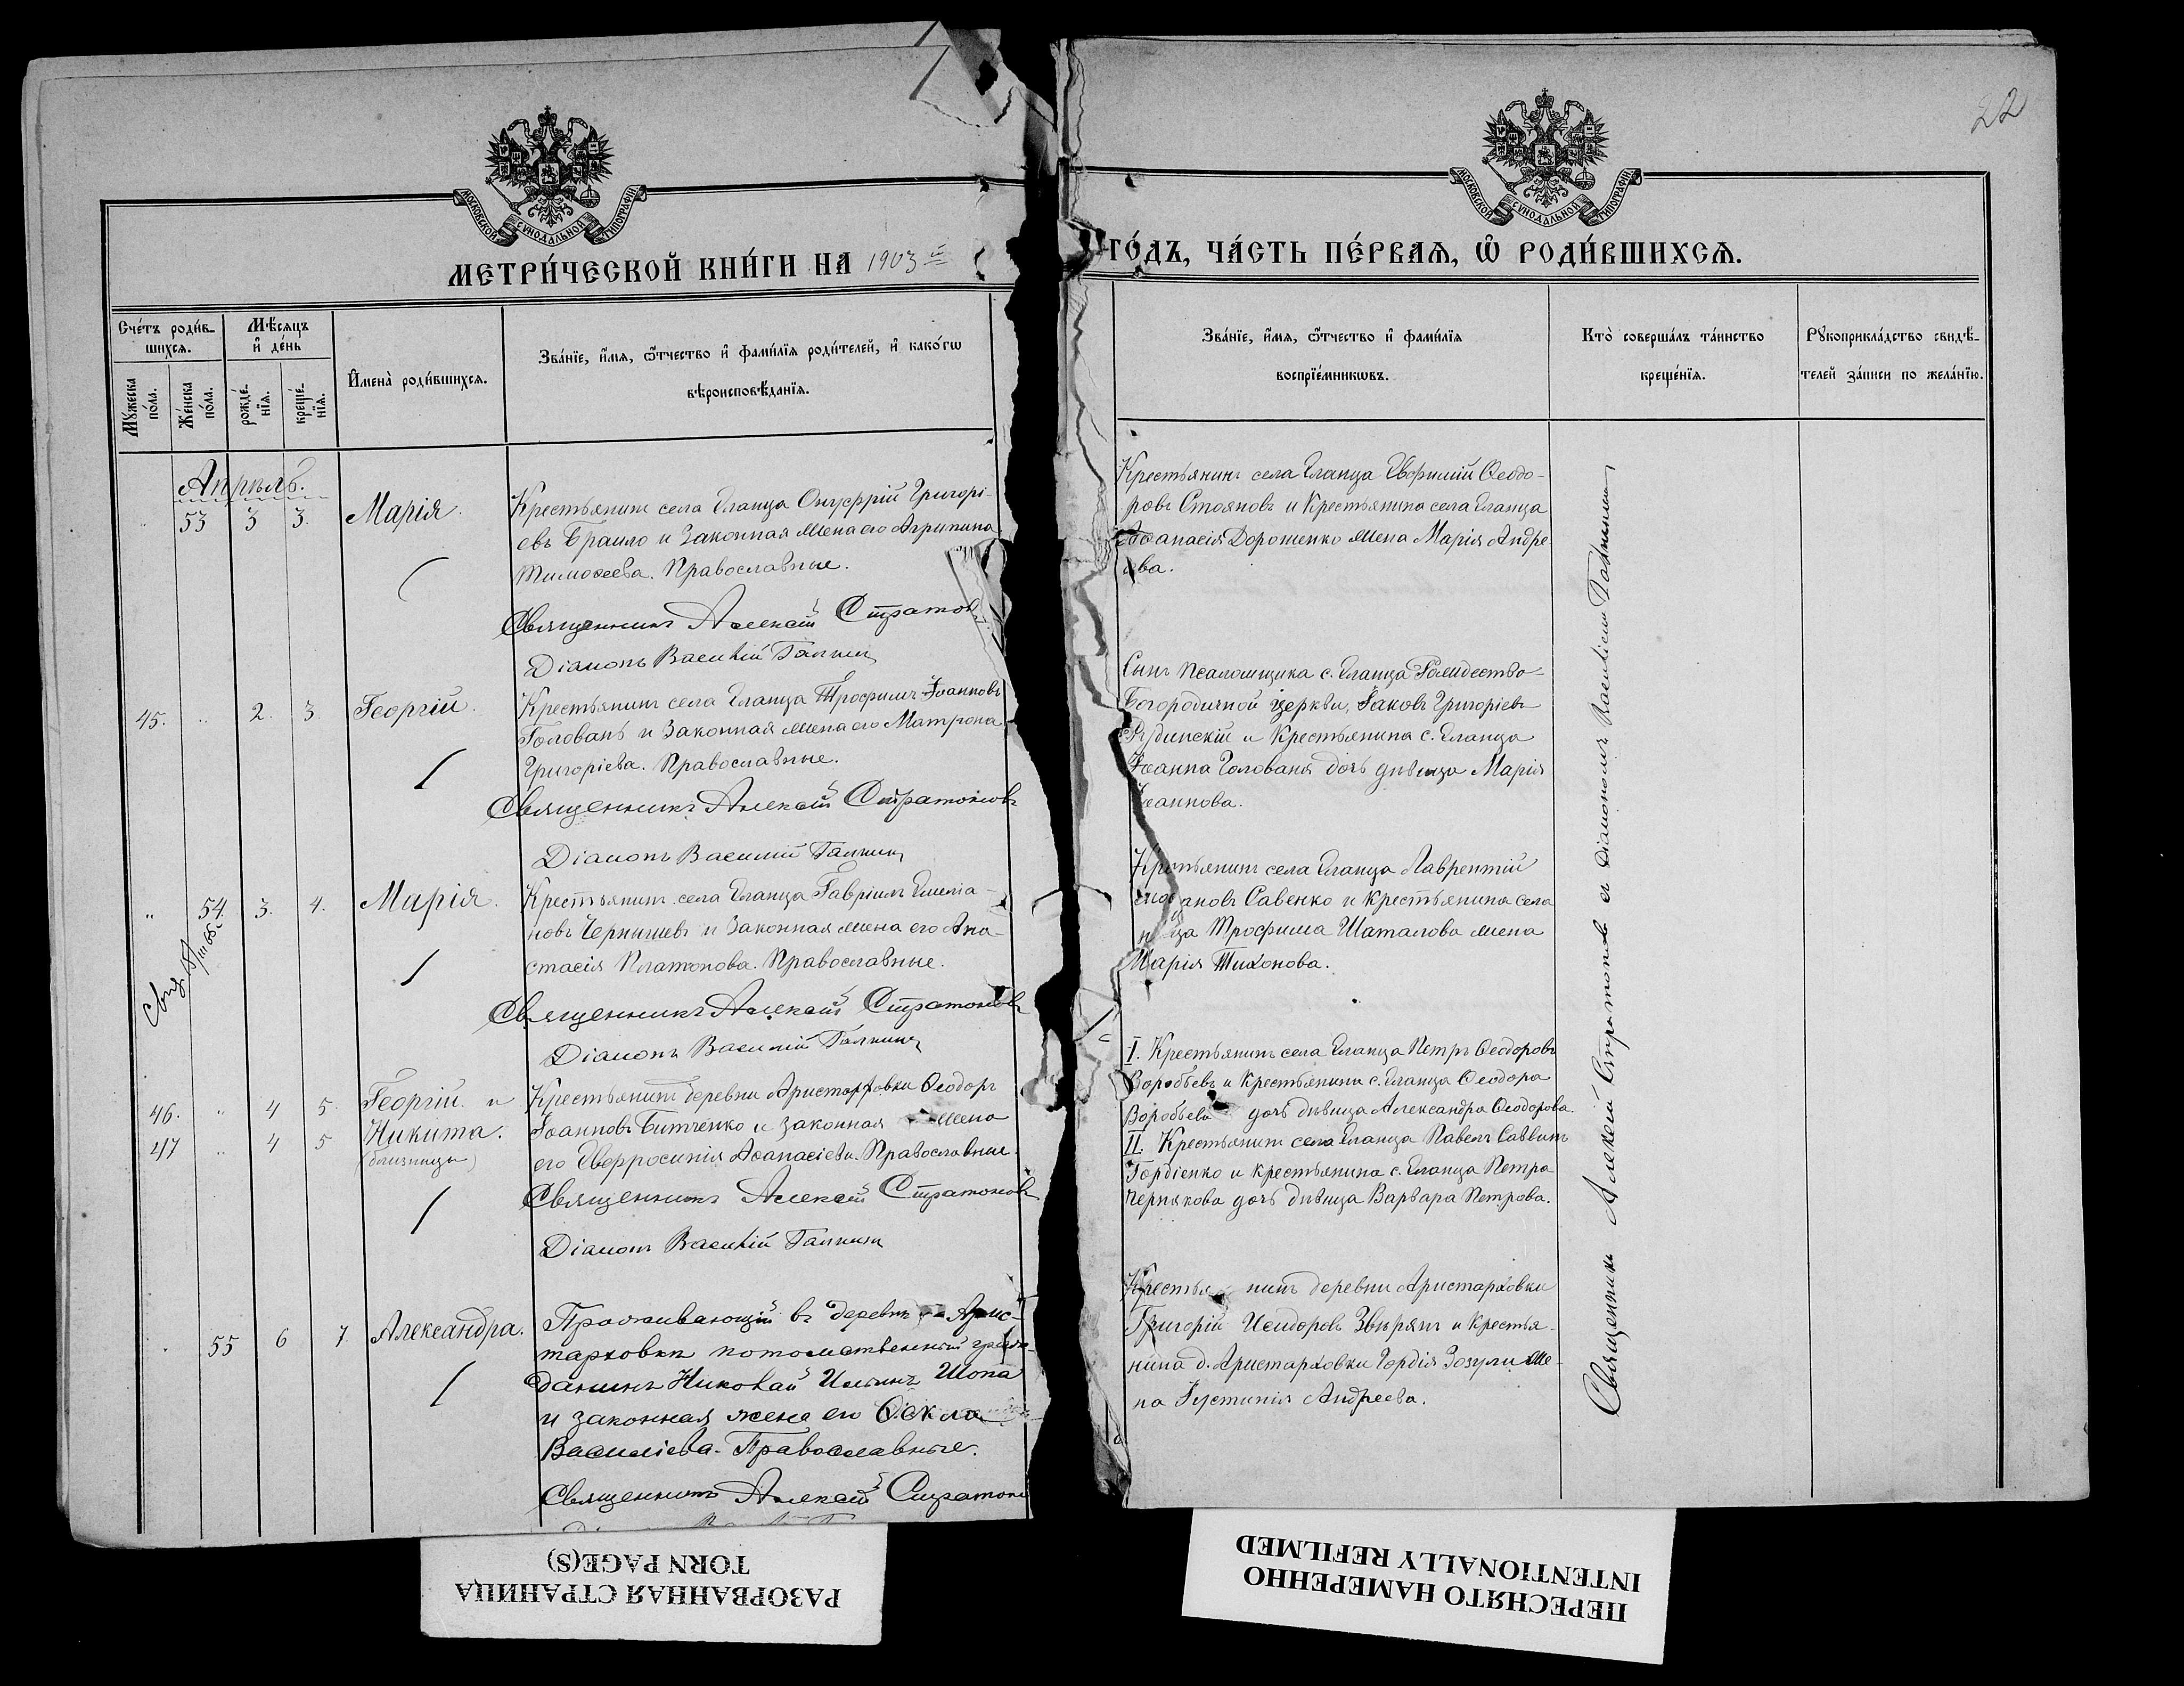 22
МОСКОВСКОЙ СѴНОДАЛЬНОЙ ТИПОГРАФІИ
МОСКОВСКОЙ СѴНОДАЛЬНОЙ ТИПОГРАФІИ
МЕТРИ́ЧЕСКОЙ КНИ́ГИ НА 1903 й
ГО́ДЪ, ЧА́СТЬ ПЕ́РВАѦ, Ѽ РОДИ́ВШИХСѦ.
Сче́тъ роди́в-
шихсѧ.
Мꙋ́жеска по́ла.
Же́нска по́ла.
Мѣ́сяцъ
и҆ де́нь
рожде́-нїѧ.
креще́-нїѧ.
И҆мена̀ роди́вшихсѧ.
Зва́нїе, и҆́мѧ, ѻ҆́тчество и҆ фами́лїѧ роди́телей, и҆ како́гѡ
вѣроисповѣ́данїѧ.
Зва́нїе, и҆́мѧ, ѻ҆́тчество и҆ фами́лїѧ
воспрїе́мникѡвъ.
Кто̀ соверша́лъ та́инство
креще́нїѧ.
Рꙋкоприкла́дство свидѣ́-
телей за́писи по жела́нїю.
Апрѣль.
53 3 3. Марія.
Крестьянинъ села Еланца Онуфрій Григорі-
евъ Браило и законная жена его Агрипина
Тимоѳеева. Православные.
Священникъ Алексѣй Стратонов
Діаконъ Василій Галкинъ
Крестьянинъ села Еланца Евфимій Ѳеодо-
ровъ Стояновъ и крестьянина села Еланца
Аѳанасія Дорошенко жена Марія Андре-
ева.
45. " 2. 3 Георгій.
Крестьянинъ села Еланца Трофимъ Іоанновъ
Голованъ и законная жена его Матрона
Григоріева. Православные.
Священникъ Алексѣй Стратоновъ
Діаконъ Василій Галкинъ
Сынъ псаломщика с. Еланца Рождество-
Богородичной церкви, Іаковъ Григоріевъ
Рудинскій и крестьянина с. Еланца
Іоанна Голованя дочь дѣвица Марія
Іоаннова.
" 54. 3. 4. Марія.
Крестьянинъ села Еланца Гавріилъ Емелiа-
новъ Чернышевъ и законная жена его Ана-
стасія Платонова. Православные.
Священникъ Алексѣй Стратоновъ
Діаконъ Василій Галкинъ
Крестьянинъ села Еланца Лаврентій
Савенко и крестьянина села
Трофима Шаталова жена
Марія Тихонова.
46. " 4 5. Георгій и
47 " 4 5 Никита.
(близнецы)
Крестьянинъ деревни Аристарховки Ѳеодоръ
Іоанновъ Битченко и законная жена
его Евфросинія Аѳанасіева. Православные.
Священникъ Алексѣй Стратоновъ
Діаконъ Василій Галкинъ
I. Крестьянинъ села Еланца Петръ Ѳеодоровъ
Воробьевъ и крестьянина с. Еланца Ѳеодора
Воробьева дочь дѣвица Александра Ѳеодорова.
II. Крестьянинъ села Еланца Павелъ Саввинъ
Гордіенко и крестьянина с. Еланца Петра
Чернякова дочь дѣвица Варвара Петрова.
55 6 7. Александра.
Проживающій въ деревнѣ Арис-
тарховкѣ потомственный граж-
данинъ Николай Ильинъ Шопа
и законная жена его Ѳекла
Василіева. Православные.
Священникъ Алексѣй Стратонов
Крестьянинъ деревни Аристарховки
Григорій Исидоровъ Звѣрянъ и крестья-
нина д. Аристарховки Гордія Зозули же-
на Іустинія Андреева.
Священникъ Алексѣй Стратоновъ съ Діакономъ Василіемъ Галкинымъ
РАЗОРВАННАЯ СТРАНИЦА
TORN PAGE(S)
ПЕРЕСНЯТО НАМЕРЕННО
INTENTIONALLY REFILMED